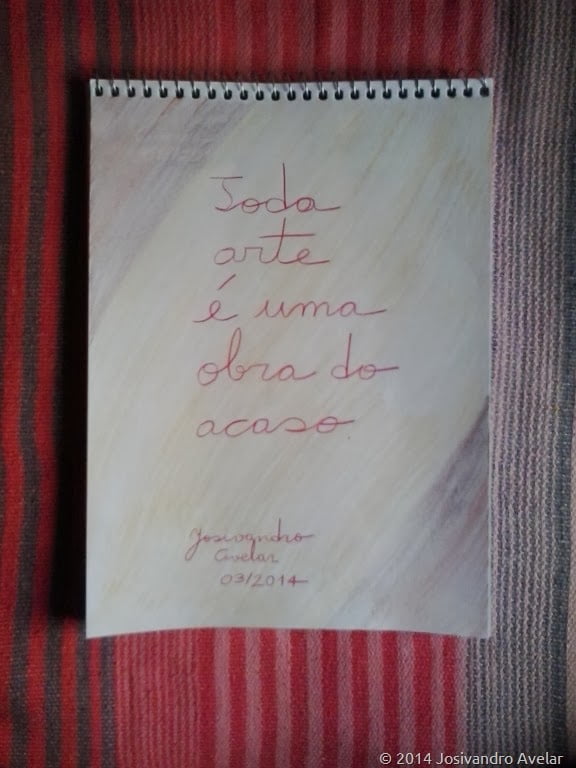 Toda
arte
é uma
obra do
acaso
Josivandro
Avelar
03/2014
© 2014 Josivandro Avelar